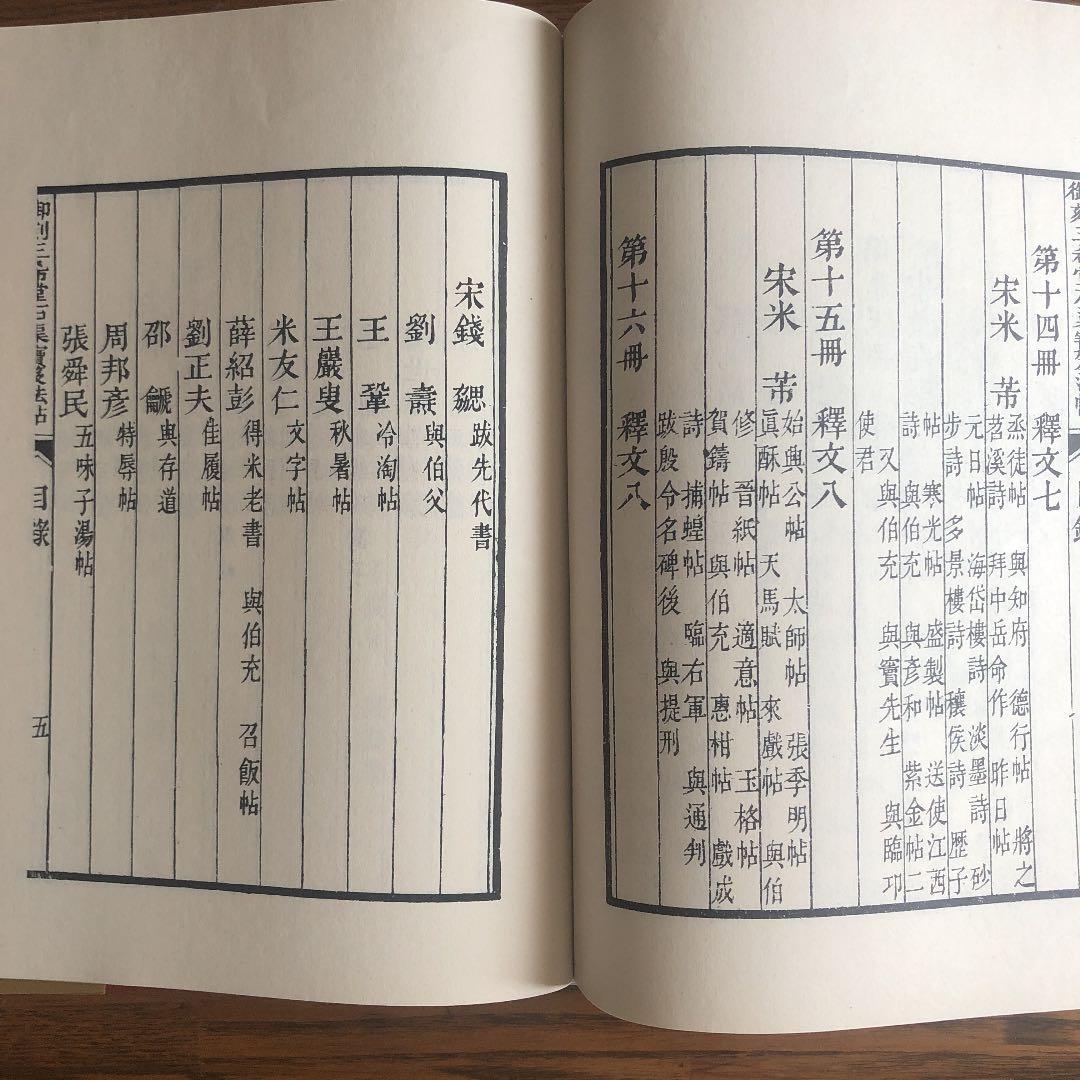 第十四冊 釋文七
宋米 芾 烝徒帖 與知府 德行帖 將之
苕溪詩 拜中岳命作 昨日帖
元日帖 海岱樓詩 淡墨詩 砂
步詩 多景樓詩 穰侯詩 歷子
帖 寒光帖 盛製帖 送使江西
詩 與伯充 與彥和 紫金帖二
又與伯充 與竇先生 與臨卭
使君
第十五冊 釋文八
宋米 芾 始興公帖 太師帖 張季明帖
眞酥帖 天馬賦 來戲帖 與伯
修 晉紙帖 適意帖 玉格帖
賀鑄帖 與伯充 惠柑帖 戲成
詩 捕蝗帖 臨右軍 與通判
跋殷令名碑後 與提刑
第十六冊 釋文八
宋錢 勰 跋先代書
劉 燾 與伯父
王 鞏 冷淘帖
王巖叟 秋暑帖
米友仁 文字帖
薛紹彭 得米老書 與伯充 召飯帖
劉正夫 佳履帖
邵 䶵 與存道
周邦彥 特辱帖
張舜民 五味子湯帖
御刻三希堂石渠寶笈法帖 目錄 五